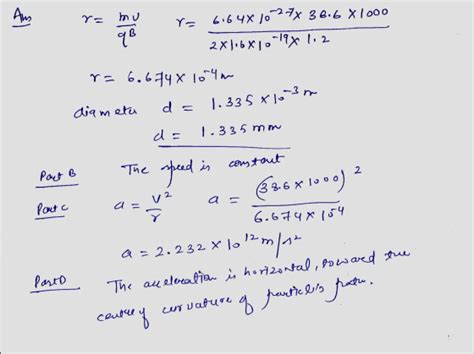 Ans r = mv / qB r = 6.64 X 10^-27 X 38.6 X 1000 / 2 X 1.6 X 10^-19 X 1.2
r = 6.674 X 10^-4 m
diameter d = 1.335 X 10^-3 m
d = 1.335 mm
Part B The speed is constant
Part C a = v^2 / r a = (38.6 X 1000)^2 / 6.674 X 10^4
a = 2.232 X 10^12 m/s^2
Part D The acceleration is horizontal, toward the
center of curvature of particle's path.